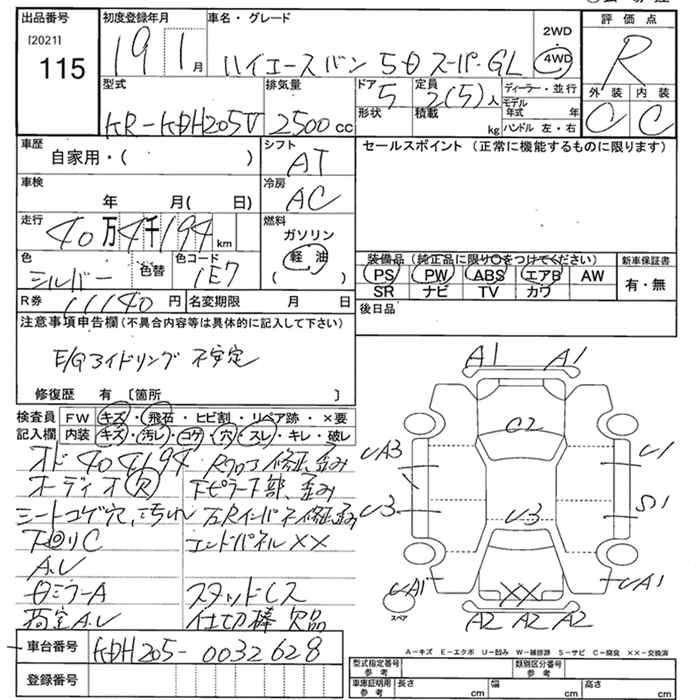 出品番号
[2021]
115
初度登録年月
19 1月
車名・グレード
ハイエースバン 5D スーパーGL
2WD
4WD
評価点
R
外装 内装
C C
型式
KR-KDH205V
排気量
2500cc
ドア
5
形状
定員
2(5)人
積載
kg
ディーラー・並行
モデル年式 年
ハンドル 左・右
車歴
自家用・( )
シフト
AT
車検
年 月( 日)
冷房
AC
走行
40万4千194km
燃料
ガソリン
軽油
( )
色
シルバー
色替
色コード
1E7
R券
11140円
名変期限 月 日
セールスポイント (正常に機能するものに限ります)
装備品 (純正品に限り○をつけてください)
PS PW ABS エアB AW
SR ナビ TV カワ
新車保証書
有・無
後日品
注意事項申告欄(不具合内容等は具体的に記入して下さい)
E/Gアイドリング 不安定
修復歴 有 〔箇所 〕
検査員記入欄
FW キズ・飛石・ヒビ割・リペア跡・×要
内装 キズ・汚レ・コゲ・穴・スレ・キレ・破レ
オド404194
オーディオ穴
シートコゲ穴、
下回りC
A.V
スタッドレス
仕切棒 欠品
エンドパネル××
A1 A1
C2
UA3 U1
U3 U3 S1
UA1 UA1
××
A2 A2 A2
スペア
A－キズ E－エクボ U－凹み W－補修跡 S－サビ C－腐食 ××－交換済
車台番号
KDH205-0032628
登録番号
型式指定番号 参考
類別区分番号 参考
車庫証明用 参考
長さ cm
幅 cm
高さ cm